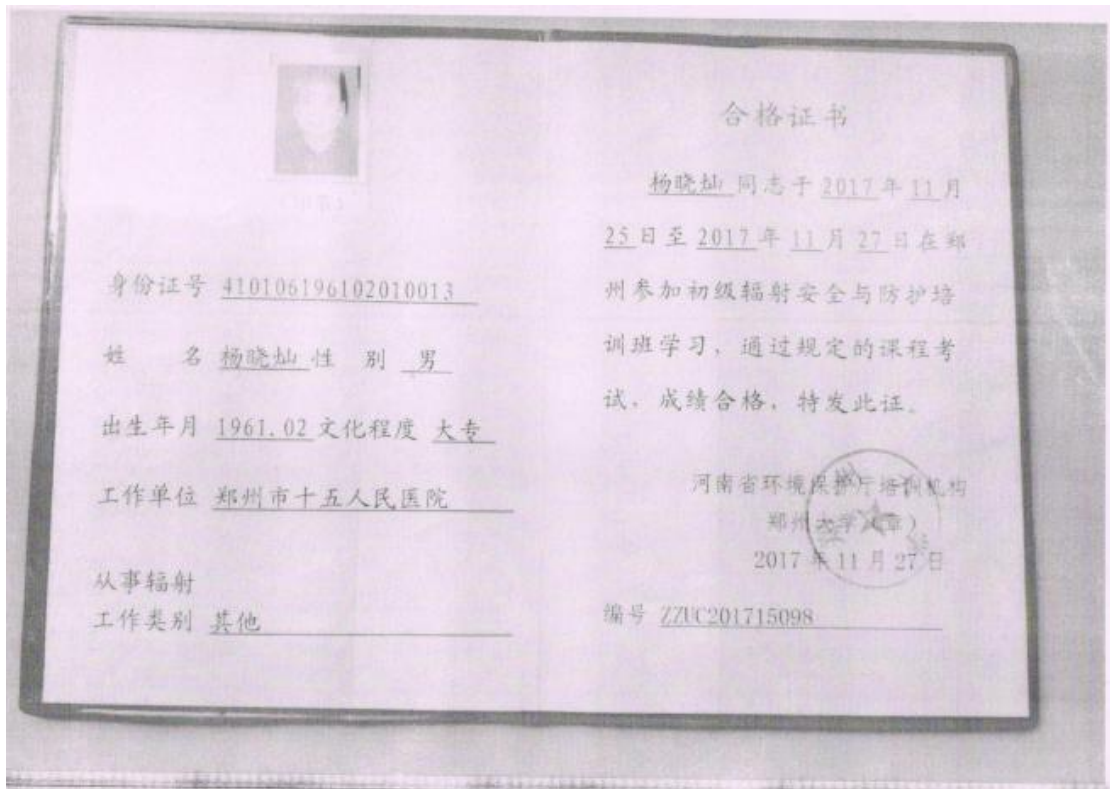 身份证号 410106196102010013
姓 名 杨晓灿 性 别 男
出生年月 1961.02 文化程度 大专
工作单位 郑州市十五人民医院
从事辐射
工作类别 其他
合格证书
杨晓灿 同志于 2017 年 11 月
25 日至 2017 年 11 月 27 日在郑
州参加初级辐射安全与防护培
训班学习，通过规定的课程考
试，成绩合格，特发此证。
河南省环境保护厅培训机构
郑州大学（章）
2017 年 11 月 27 日
编号 ZZUC201715098